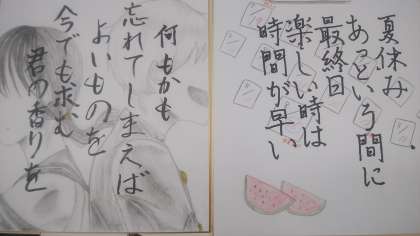 夏休み
あっという間に
最終日
楽しい時は
時間が早い
何もかも
忘れてしまえば
よいものを
今でも求む
君の香りを